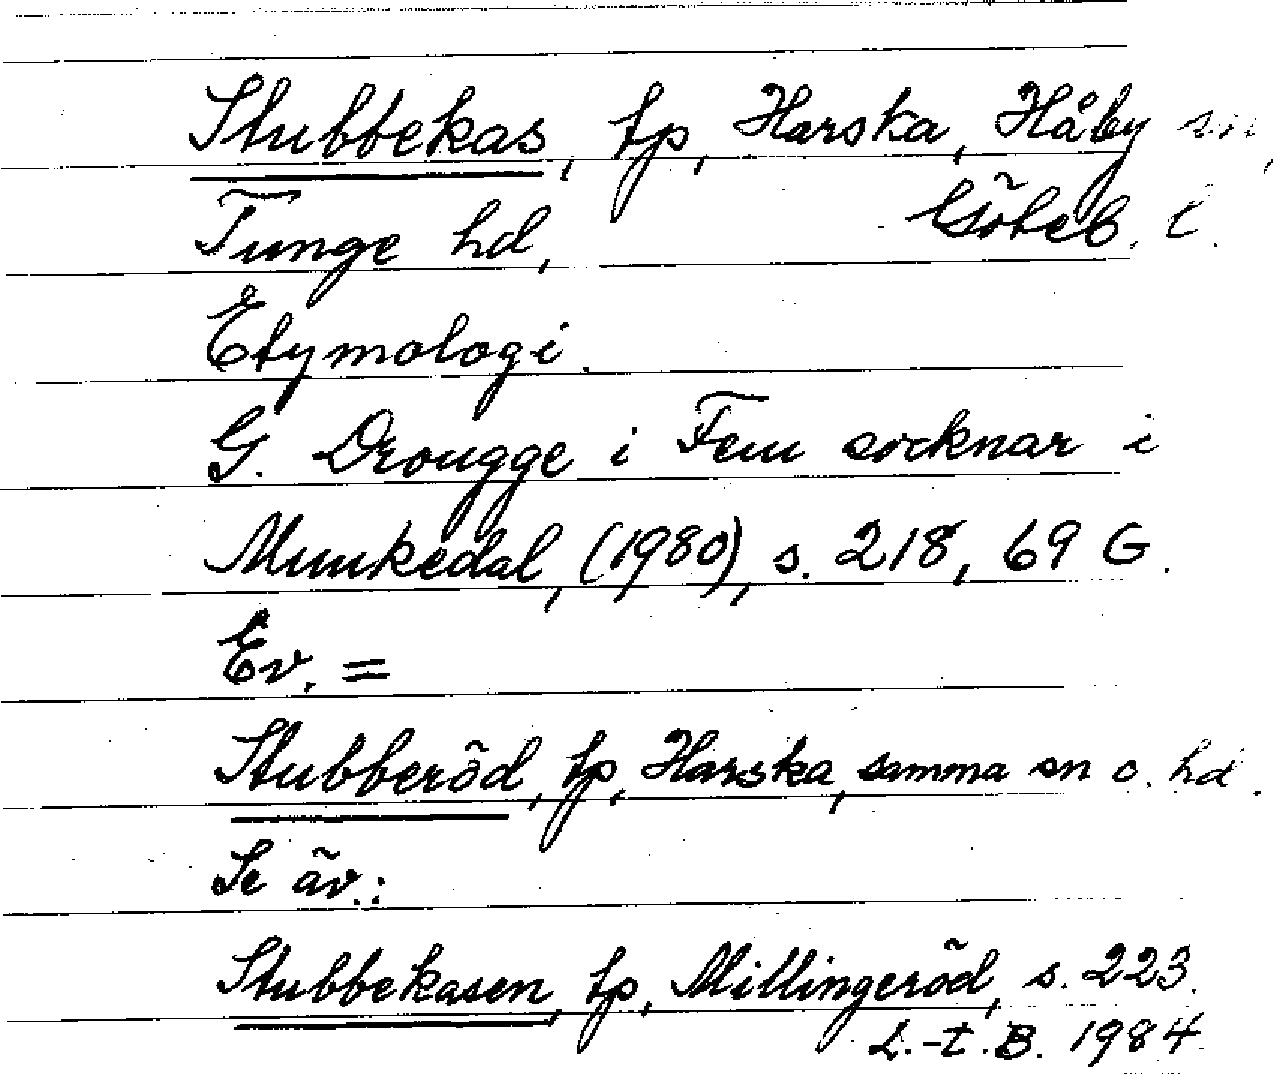 Stubbekas, tp, Harska, Håby sn,
Tunge hd, Göteb. l.
Etymologi.
G. Drougge i Fem socknar i
Munkedal, (1980), s. 218, 69 G.
Ev. =
Stubberöd, tp, Harska, samma sn o. hd.
Se äv.:
Stubbekasen, tp, Millingeröd, s. 223.
L.-t. B. 1984